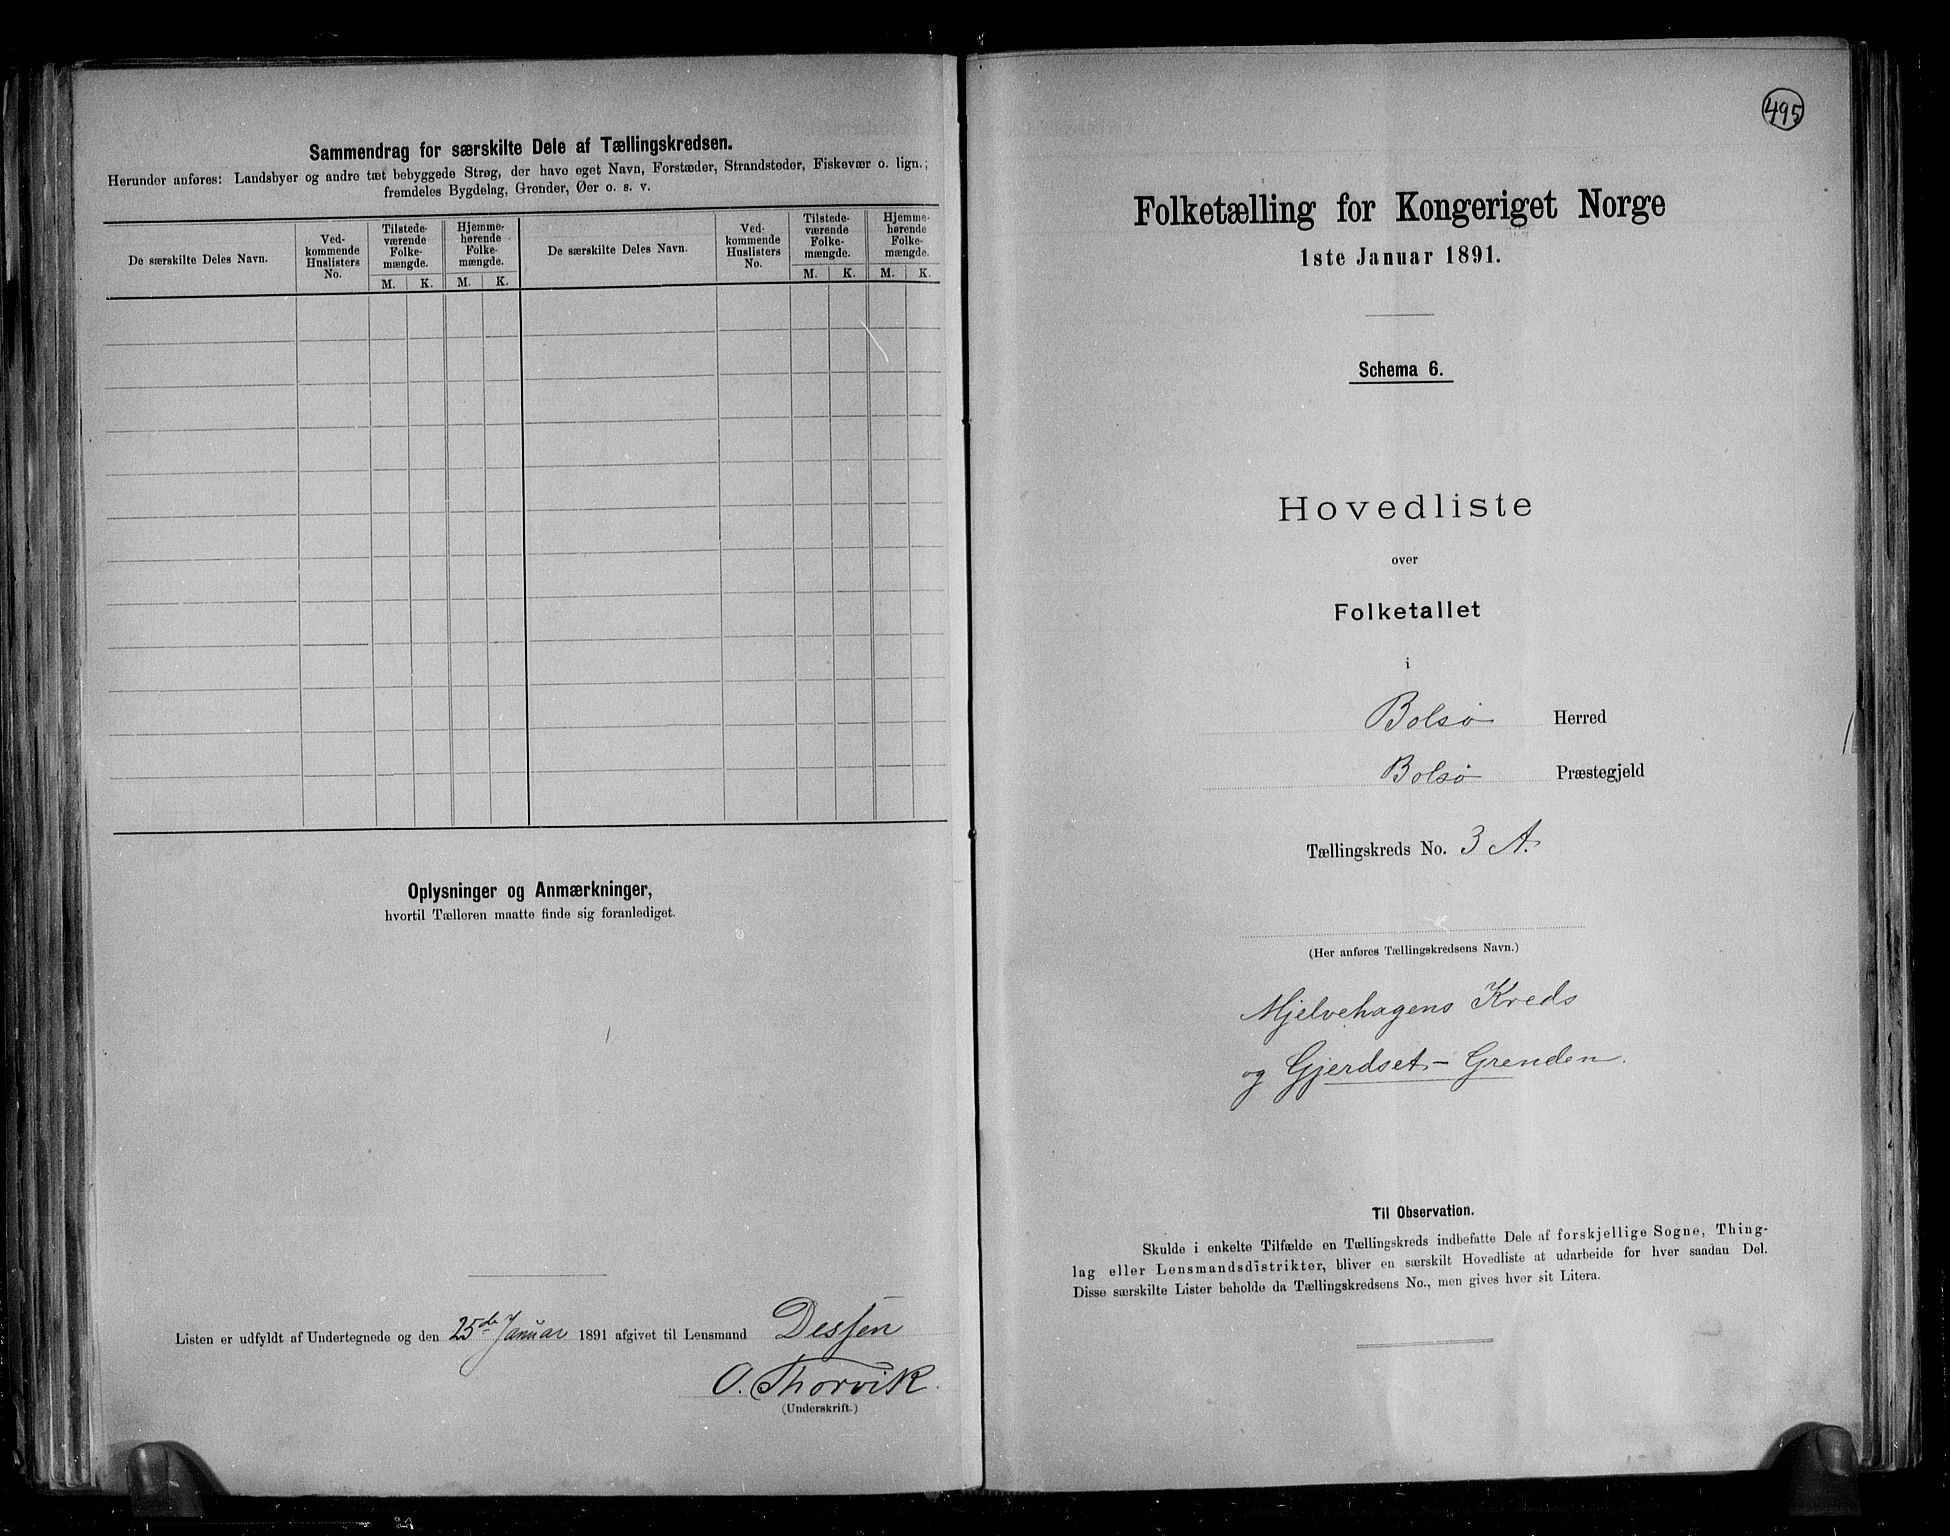 Sammendrag for særskilte Dele af Tællingskredsen.
Herunder anføres: Landsbyer og andre tæt bebyggede Strøg, der have eget Navn, Forstæder, Strandsteder, Fiskevær o. lign.;
fremdeles Bygdelag, Grender, Øer o. s. v.
De særskilte Deles Navn.
Ved-
kommende
Huslisters
No.
Tilstede-
værende
Folke-
mængde.
M. K.
Hjemme-
hørende
Folke-
mængde.
M. K.
De særskilte Deles Navn.
Ved-
kommende
Huslisters
No.
Tilstede-
værende
Folke-
mængde.
M. K.
Hjemme-
hørende
Folke-
mængde.
M. K.
Oplysninger og Anmærkninger,
hvortil Tælleren maatte finde sig foranlediget.
Listen er udfyldt af Undertegnede og den 25de Januar 1891 afgivet til Lensmand Dessen
O. Thorvik.
(Underskrift.)
495
Folketælling for Kongeriget Norge
1ste Januar 1891.
Schema 6.
Hovedliste
over
Folketallet
i
Bolsø Herred
Bolsø Præstegjeld
Tællingskreds No. 3 A.
(Her anføres Tællingskredsens Navn.)
Mjelvehagens Kreds
og Gjerdset-Grenden.
Til Observation.
Skulde i enkelte Tilfælde en Tællingskreds indbefatte Dele af forskjellige Sogne, Thing-
lag eller Lensmandsdistrikter, bliver en særskilt Hovedliste at udarbeide for hver saadan Del.
Disse særskilte Lister beholde da Tællingskredsens No., men gives hver sit Litera.